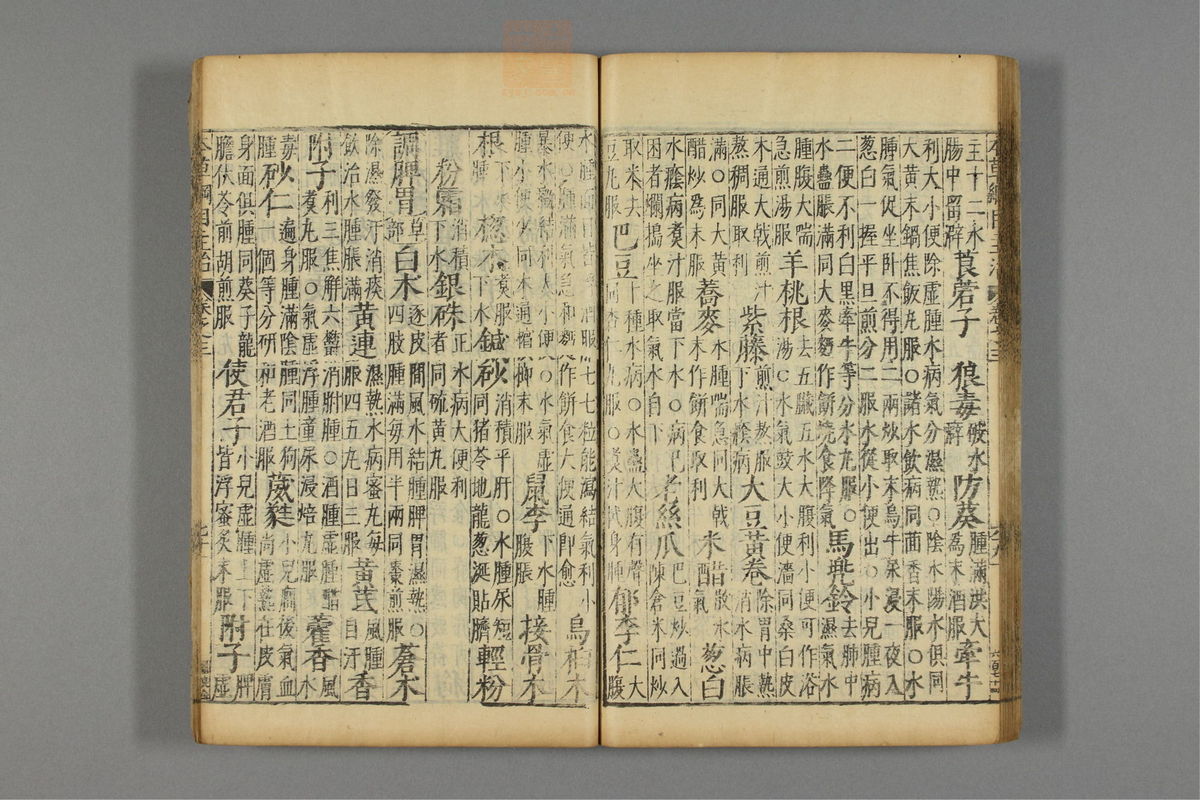 主十二水腸中留癖 莨菪子 狼毒 破水癖 防葵 腫滿洪大為末酒服 牽牛
利大小便除虛腫水病氣分濕熱○陰水陽水俱同
大黃末鍋焦飯丸服○諸水飲病同茴香末服○水
腫氣促坐臥不得用二兩炒取末烏牛尿浸一夜入
葱白一握平旦煎分二服水從小便出○小兒腫病
二便不利白黑牽牛等分水丸服○水蠱脹滿同大麥麪作餅燒食降氣 馬兜鈴 去肺中濕氣水
腫腹大喘急煎湯服 羊桃根 去五臟五水大腹利小便可作浴湯○水氣鼓大小便濇同桑白皮
木通大戟煎汁熬稠服取利 紫藤 煎汁熬服下水癊病 大豆黃卷 除胃中熱消水病脹
滿○同大黃醋炒為末服 蕎麥 水腫喘急同大戟末作餅食取利 米醋 散水氣 葱白
水癊病煑汁服當下水○病已困者爛搗坐之取氣水自下 老絲瓜 巴豆炒過入陳倉米同炒
取米去豆丸服 巴豆 十種水病○水蠱大腹有聲同杏仁丸服○煑汁拭身腫 郁李仁 大腹
水腫面目皆浮酒服七七粒能瀉結氣利小
便○腫滿氣急和麪作餅食大便通卽愈 烏桕木
暴水癥結利大小便○水氣虛腫小便少同木通檳榔末服 鼠李 下水腫腹脹 接骨木
根 下水腫 楤木 煑服下水 鍼砂 消積平肝○水腫尿短同猪苓地龍葱涎貼臍 輕粉
粉霜 消積下水 銀硃 正水病大便利者同硫黃丸服
調脾胃 草部 白朮 逐皮間風水結腫脾胃濕熱○四肢腫滿每用半兩同棗煎服 蒼朮
除濕發汗消痰飲治水腫脹滿 黃連 濕熱水病蜜丸每服四五丸日三服 黃芪 風腫自汗 香
附子 利三焦解六鬱消胕腫○酒腫虛腫醋煑丸服○氣虛浮腫童尿浸焙丸服 藿香 風水
毒腫 砂仁 遍身腫滿陰腫同土狗一個等分研和老酒服 葳蕤 小兒癇後氣血尚虛熱在皮膚
身面俱腫同葵子龍膽茯苓前胡煎服 使君子 小兒虛腫上下皆浮蜜炙末服 附子 脾虛
本草綱目主治